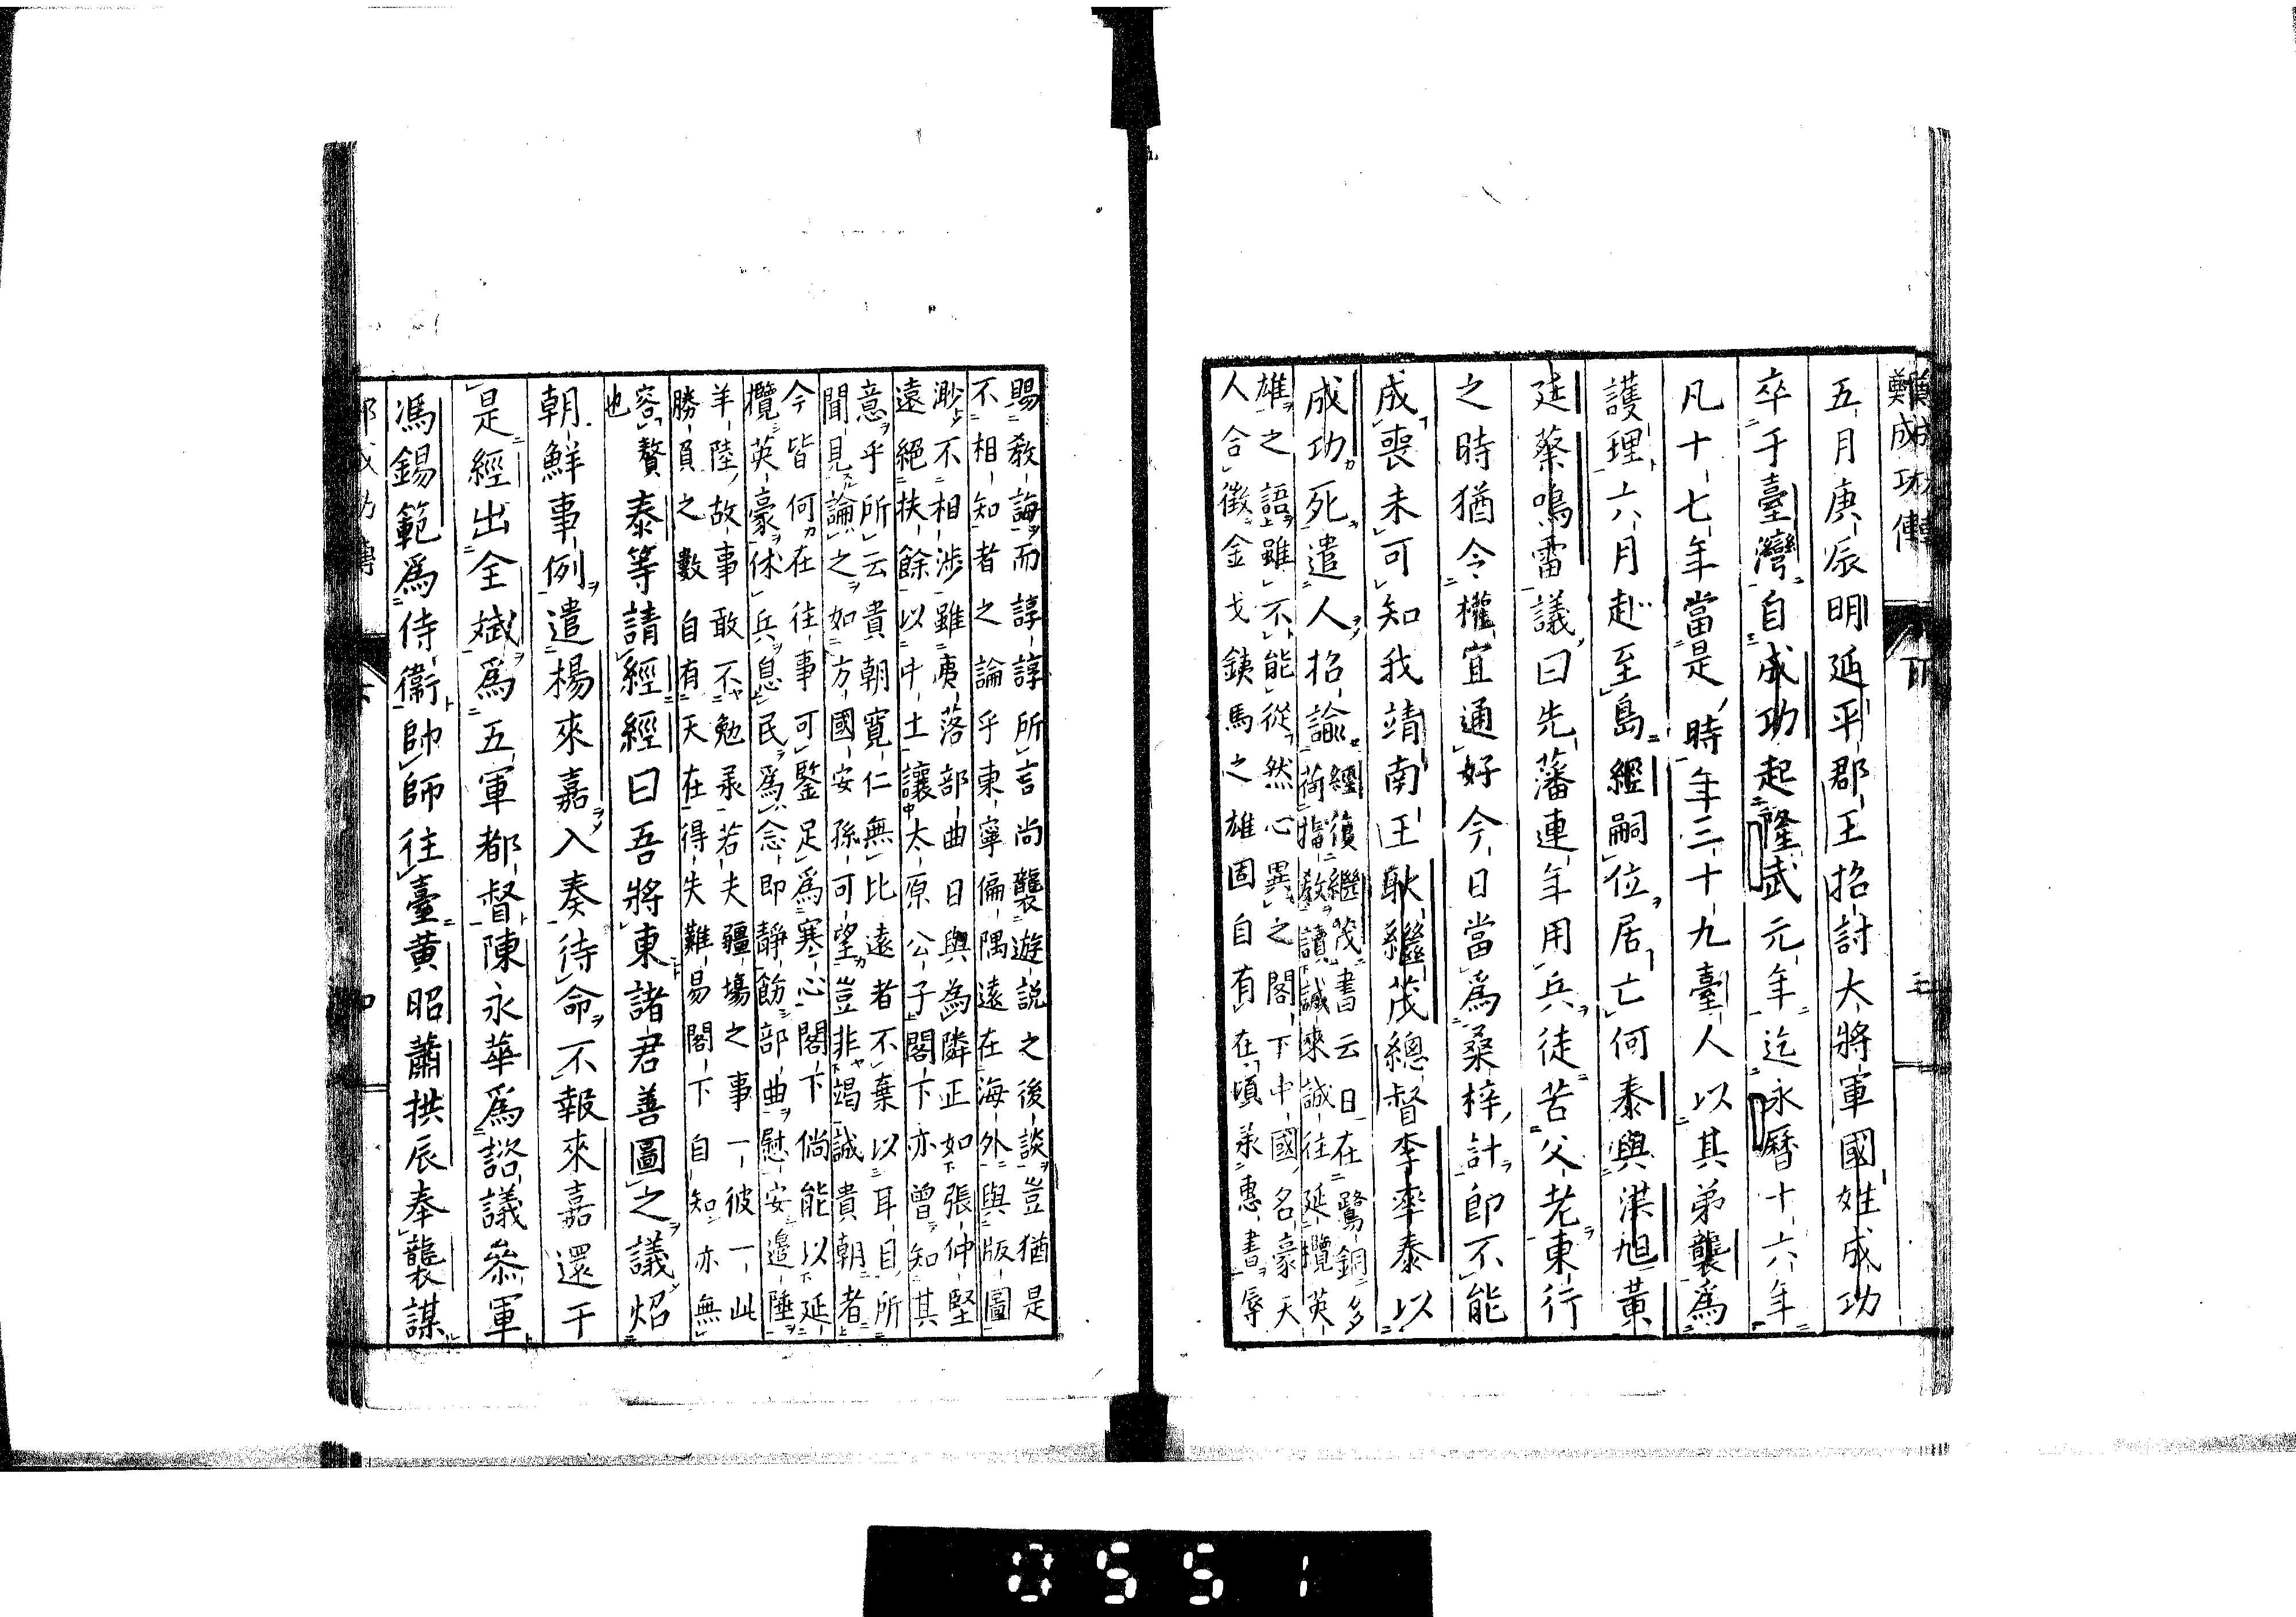 鄭成功傳
五月庚辰明延平郡王招討大將軍國姓成功
卒于臺灣自成功起隆武元年迄永曆十六年
凡十七年當是時年三十九臺人以其弟襲爲
護理六月赴至島經嗣位居亡何泰與洪旭黃
廷蔡鳴雷議曰先藩連年用兵徒苦父老東行
之時猶令權宜通好今日當爲桑梓計即不能
成喪未可知我靖南王耿繼茂總督李率泰以
成功死遣人招諭
經復繼茂書云日在鷺銅多
荷指教讀誠來誠往延攬英
雄之語雖不能從然心異之閣下中國名豪天
人合徵金戈鐵馬之雄固自有在頃承惠書辱
賜教誨而諄諄所言尚襲遊說之後談豈猶是
不相知者之論乎東寧偏隅遠在海外與版圖
渺不相涉雖夷落部曲日與為隣正如張仲堅
遠絕扶餘以中土讓太原公子閣下亦曾知其
意乎所云貴朝寬仁無比遠者不棄以耳目所
聞見論之如方國安孫可望豈非竭誠貴朝者
今皆何在往事可鑒足爲寒心閣下倘能以延
攬英豪休兵息民爲念即靜飭部曲慰安邊陲
羊陸故事敢不勉承若夫疆場之事一彼一此
勝負之數自有天在得失難易閣下自知亦無
容贅
也
泰等請經經曰吾將東諸君善圖之議炤
朝鮮事例遣楊來嘉入奏待命不報來嘉還于
是經出全斌爲五軍都督陳永華爲諮議叅軍
馮錫範爲侍衞帥師往臺黃昭蕭拱辰奉襲謀
0551